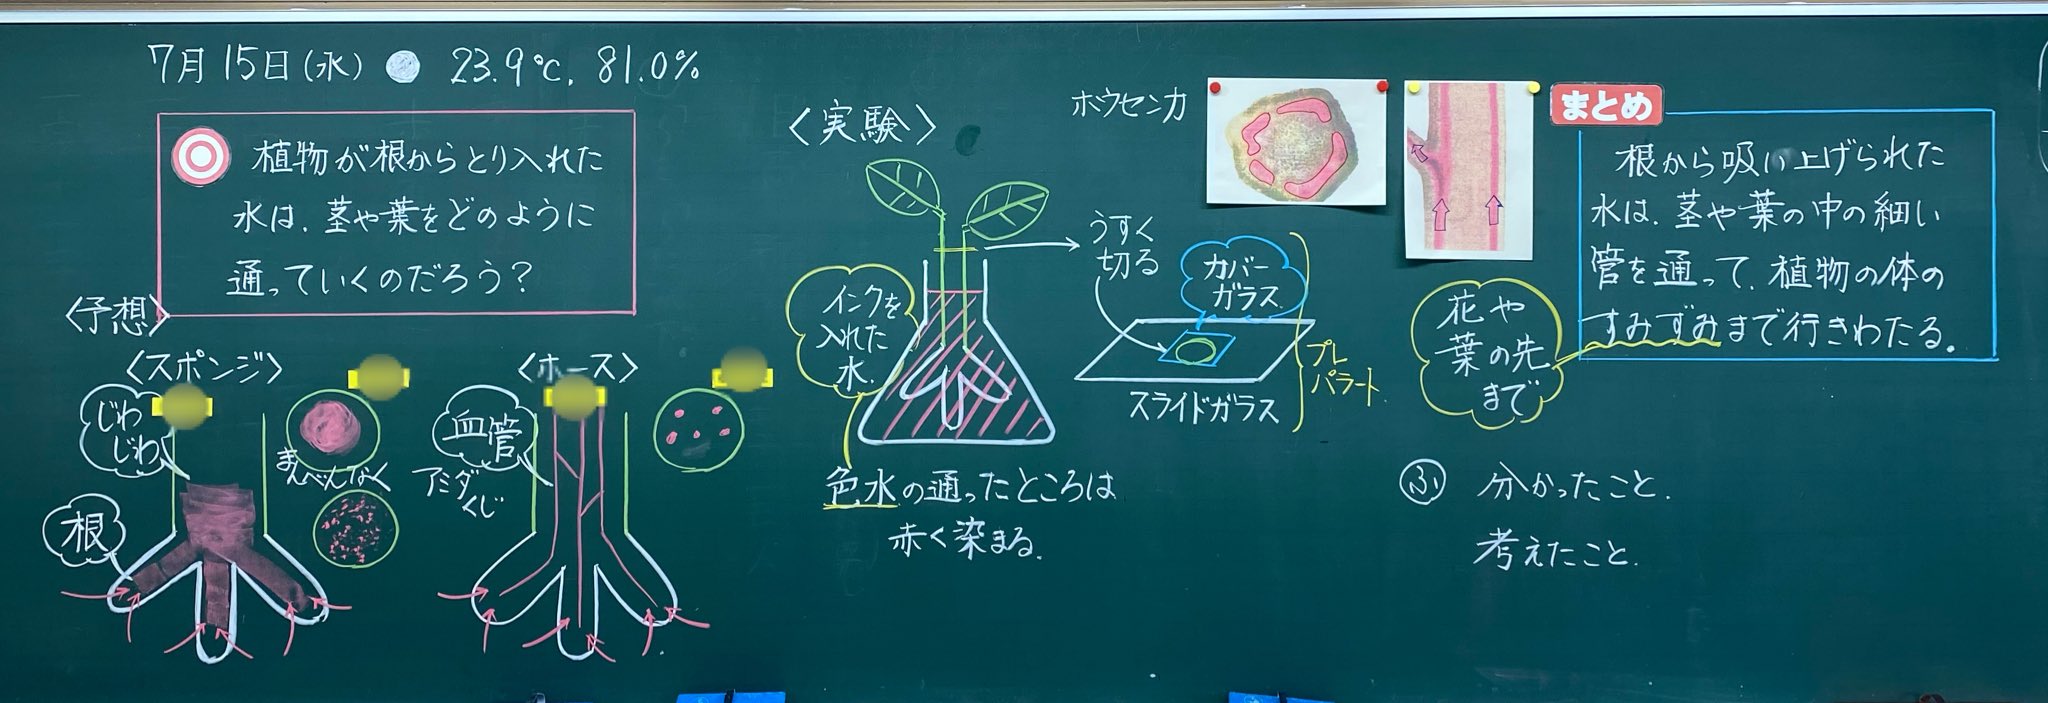 7月15日(水) 23.9℃. 81.0%
植物が根からとり入れた
水は.茎や葉をどのように
通っていくのだろう?
〈予想〉
〈スポンジ〉
じわ
じわ
まんべんなく
根
〈ホース〉
血管
アミダ
くじ
〈実験〉
インクを
入れた
水.
色水の通ったところは
赤く染まる.
うすく
切る
カバー
ガラス
スライドガラス
プレ
パラート
ホウセンカ
まとめ
根から吸い上げられた
水は.茎や葉の中の細い
管を通って.植物の体の
すみずみまで行きわたる.
花や
葉の先
まで
ふ 分かったこと.
考えたこと.